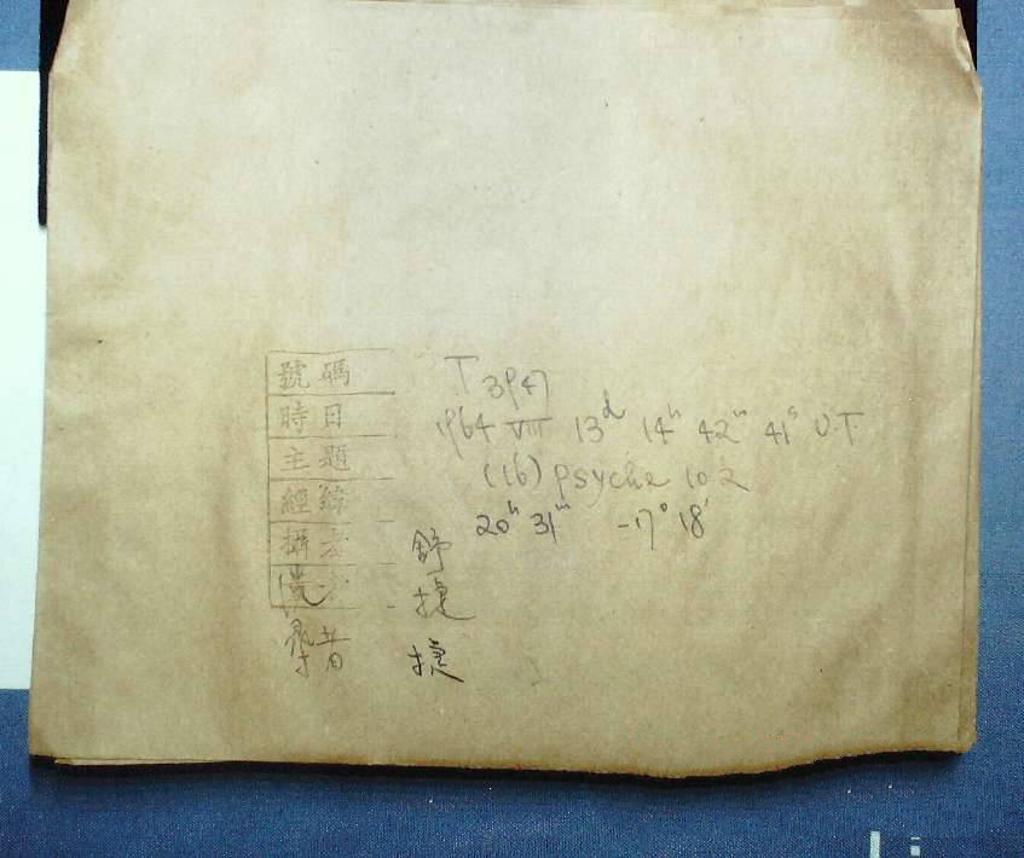 號碼 T 3947
時日 1964 VIII 13d 14h 42m 41s U.T.
主題 (16) psyche 10.2
經緯 20h 31m -17° 18'
攝 舒
捷
捷